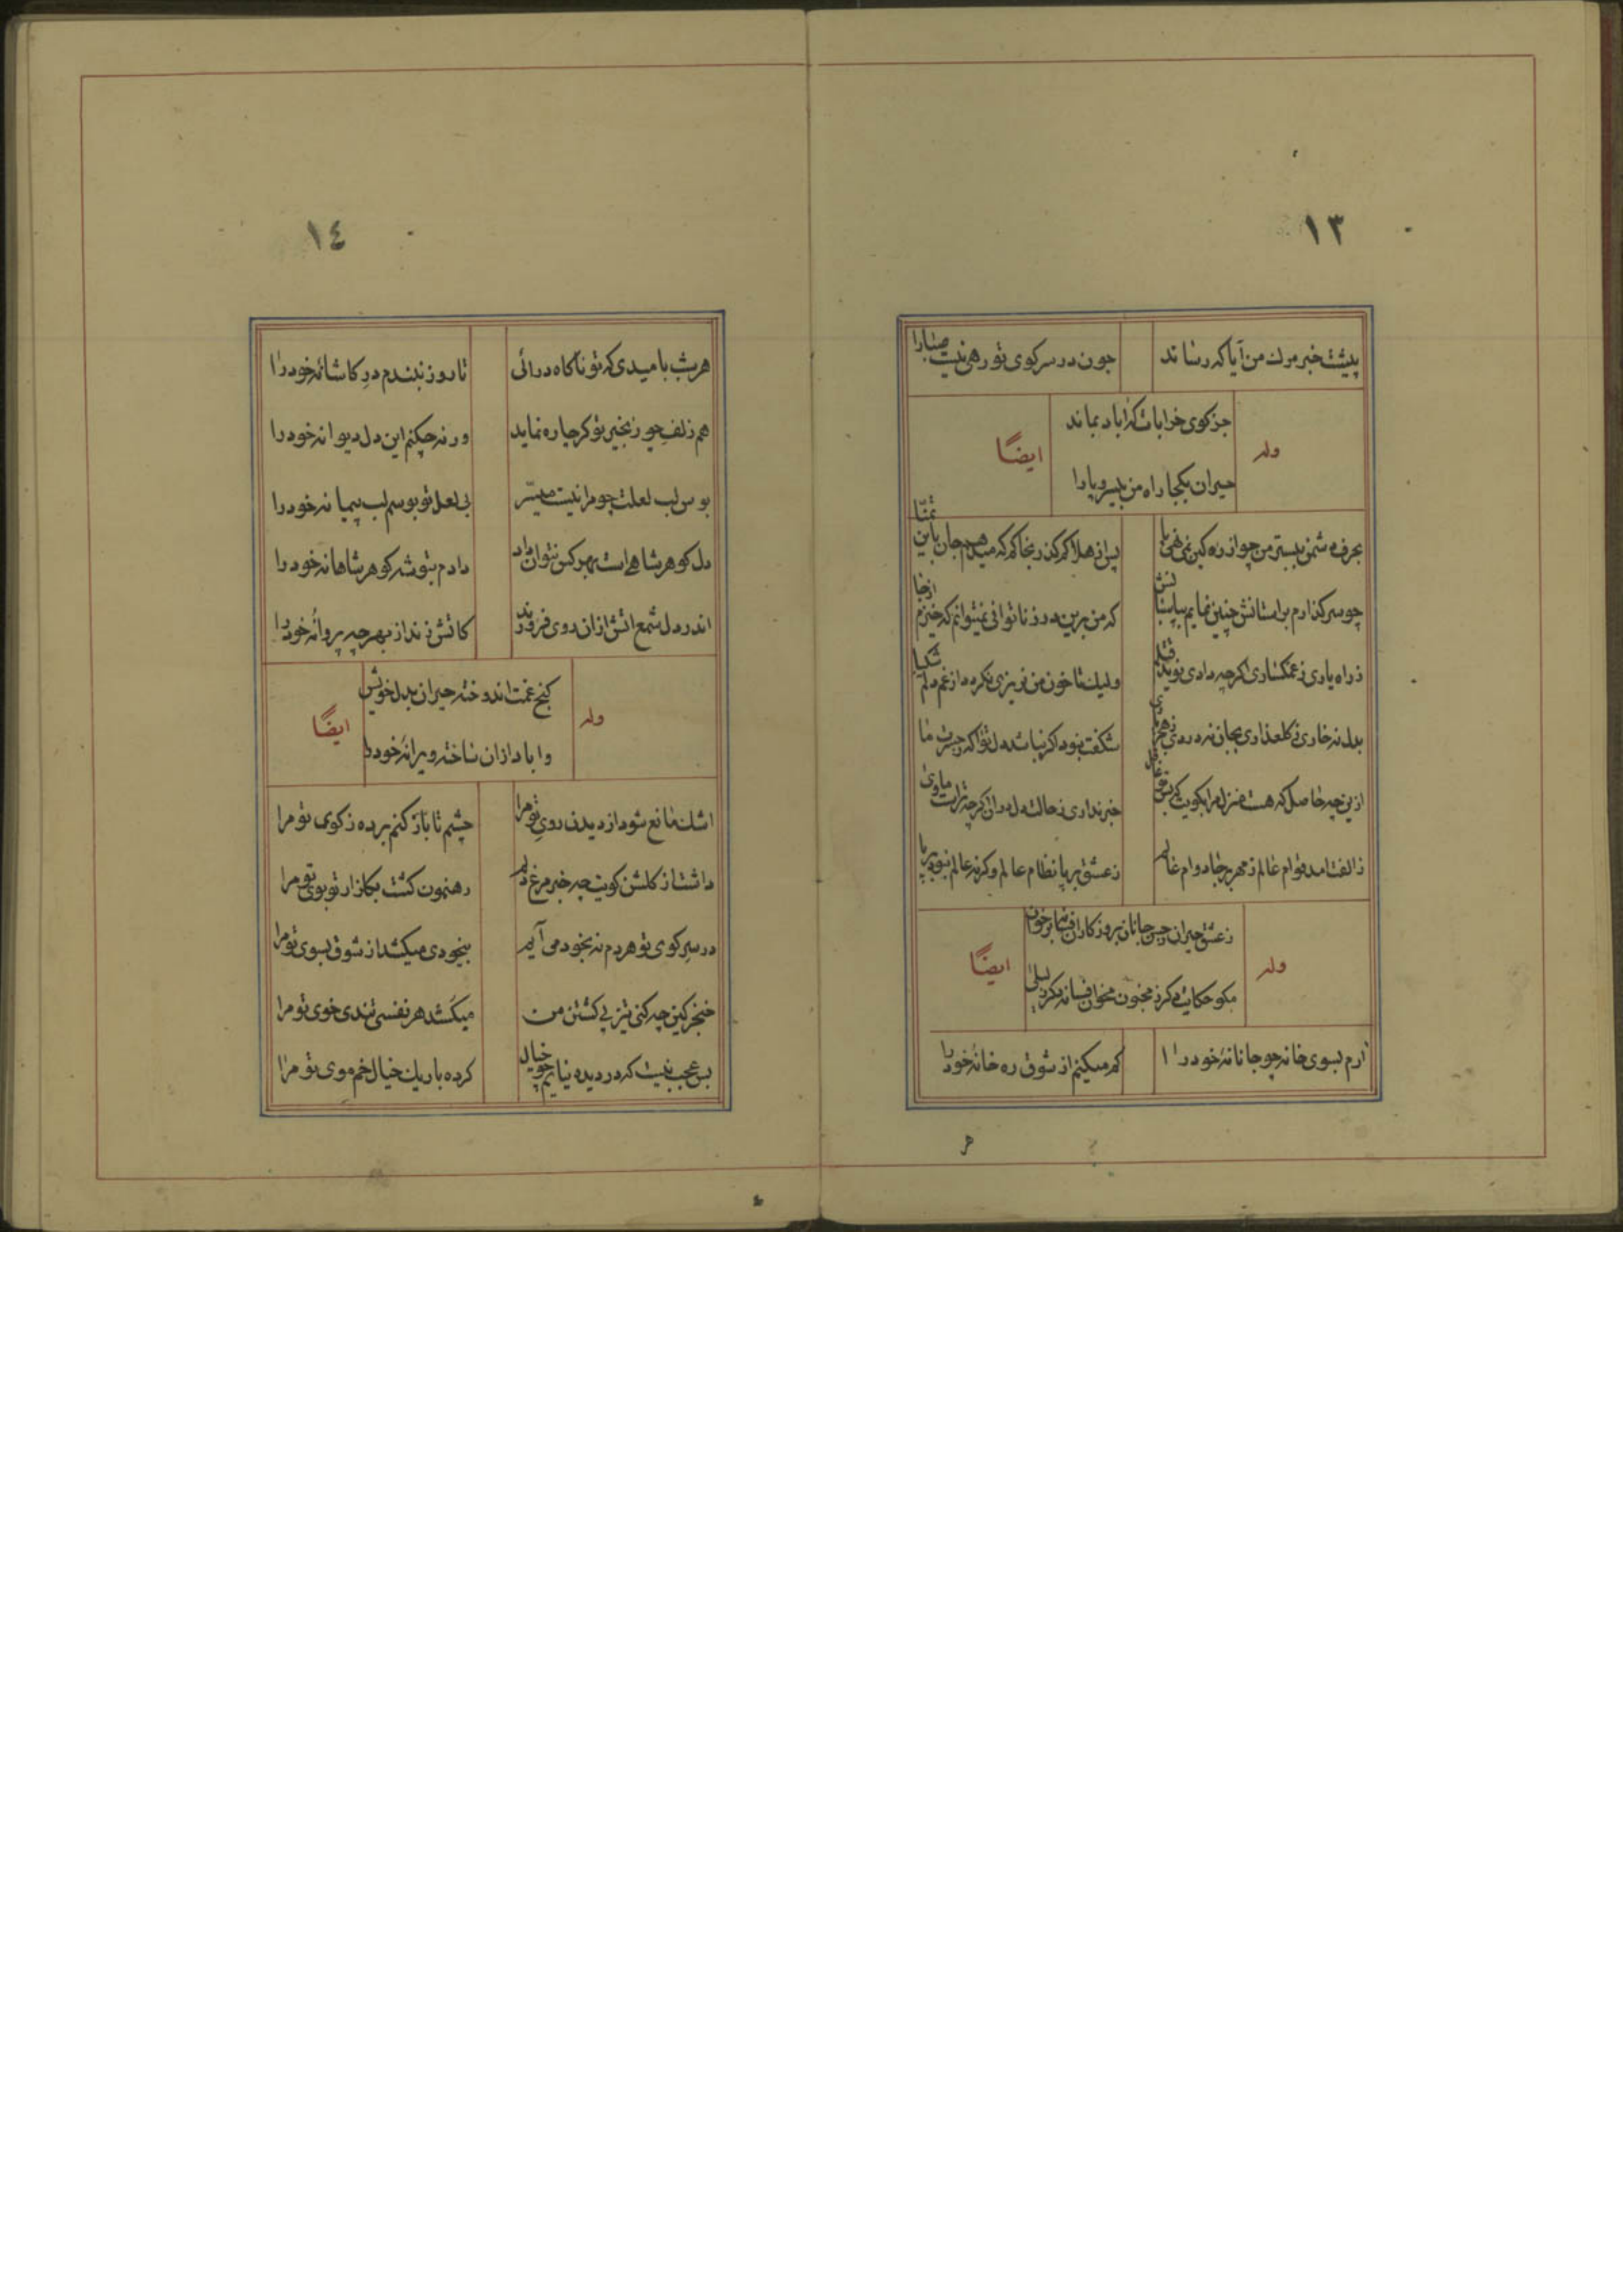 ١٣
پیشت خبر مرك من آیا که رساند
چون در سر کوی تو رهی نیست صبا را
جز کوی خرابات که اباد بماند
وله
ایضًا
حیران بکجا راه من بیسر و پا را
بحرف دشمن ببستر من چو از ره کین نمی نهی پا
پس از هلاکم کذر بخاکم که میدهم جان باین تمنّا
چو سر کذارم بر استانش چنین نمایم بپاسبانش
که من برین در ز ناتوانی نمیتوانم که خیزم از جا
ز راه یاری ز غمکساری اکرچه دادی نوید قتلم
ولیك تا خون من نریزی نکردد از غم دلم شکیبا
بدل نه خاری ز کلعذاری بجان نه دردی ز هجر یاری
شکفت نبود اکر نباشد دل تو اکه ز حسرت ما
ازین چه حاصل که هست منزل مرا بکویت که بس تو غافل
خبر نداری ز حالت دل در ان کرچه تراست ماوی
ز الفت امد قوام عالم ز مهر برجا دوام عالم
ز عشق برپا نظام عالم وکرنه عالم نبود برپا
ز عشق حیران ز حسن جانان بروزکاران فسانه برخوان
وله
ایضًا
مکو حکایت دکر ز مجنون مخوان فسانه دکر ز لیلی
ارم بسوی خانه چو جانانهٔ خود را
کم میکنم از شوق ره خانهٔ خود را
١٤
هر شب بامیدی که تو ناکاه درائی
تا روز نبندم در کاشانهٔ خود را
هم زلف چو زنجیر تو کر چاره نماید
ورنه چکنم این دل دیوانه خود را
بوس لب لعلت چو مرا نیست میسّر
بی لعل تو بوسم لب پیمانه خود را
دل کوهر شاهی است بهر کس نتوان داد
دادم بتو شه کوهر شاهانه خود را
اندر دل شمع اتش ازان روی فروزند
کاتش زند از بهر چه پروانهٔ خود را
کنج غمت اندوخته حیران بدل خویش
وله
ایضًا
واباد ازان ساخته ویرانهٔ خود را
اشك مانع شود از دیدن روی تو مرا
چشم تا باز کنم برده ز کوی تو مرا
داشت از کلشن کویت چه خبر مرغ دلم
رهنمون کشت بکلزار تو بوی تو مرا
در سر کوی تو هر دم نه بخود می آیم
بیخودی میکشد از شوق بسوی تو مرا
خنجر کین چه کنی تیز پی کشتن من
میکشد هر نفسی تندی خوی تو مرا
بس عجب نیست که در دیده نیایم چو خیال
کرده باریك خیال خم موی تو مرا